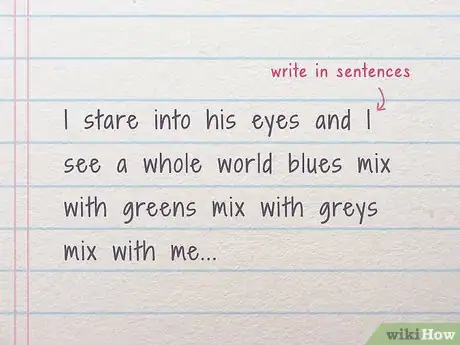 write in sentences
I stare into his eyes and I
see a whole world blues mix
with greens mix with greys
mix with me...
wikiHow